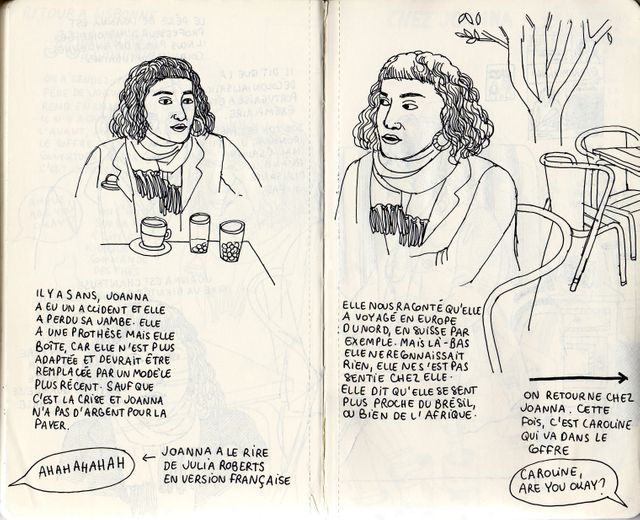 IL Y A 5 ANS, JOANNA
A EU UN ACCIDENT ET ELLE
A PERDU SA JAMBE. ELLE
A UNE PROTHÈSE MAIS ELLE
BOÎTE, CAR ELLE N'EST PLUS
ADAPTÉE ET DEVRAIT ÊTRE
REMPLACÉE PAR UN MODÈLE
PLUS RÉCENT. SAUF QUE
C'EST LA CRISE ET JOANNA
N'A PAS D'ARGENT POUR LA
PAYER.
AHAHAHAHAH
← JOANNA A LE RIRE
DE JULIA ROBERTS
EN VERSION FRANÇAISE
ELLE NOUS RACONTÉ QU'ELLE
A VOYAGÉ EN EUROPE
DU NORD, EN SUISSE PAR
EXEMPLE. MAIS LÀ-BAS
ELLE NE RECONNAISSAIT
RIEN, ELLE NE S'EST PAS
SENTIE CHEZ ELLE.
ELLE DIT QU'ELLE SE SENT
PLUS PROCHE DU BRÉSIL,
OU BIEN DE L'AFRIQUE.
ON RETOURNE CHEZ
JOANNA. CETTE
FOIS, C'EST CAROLINE
QUI VA DANS LE
COFFRE
CAROLINE,
ARE YOU OKAY?